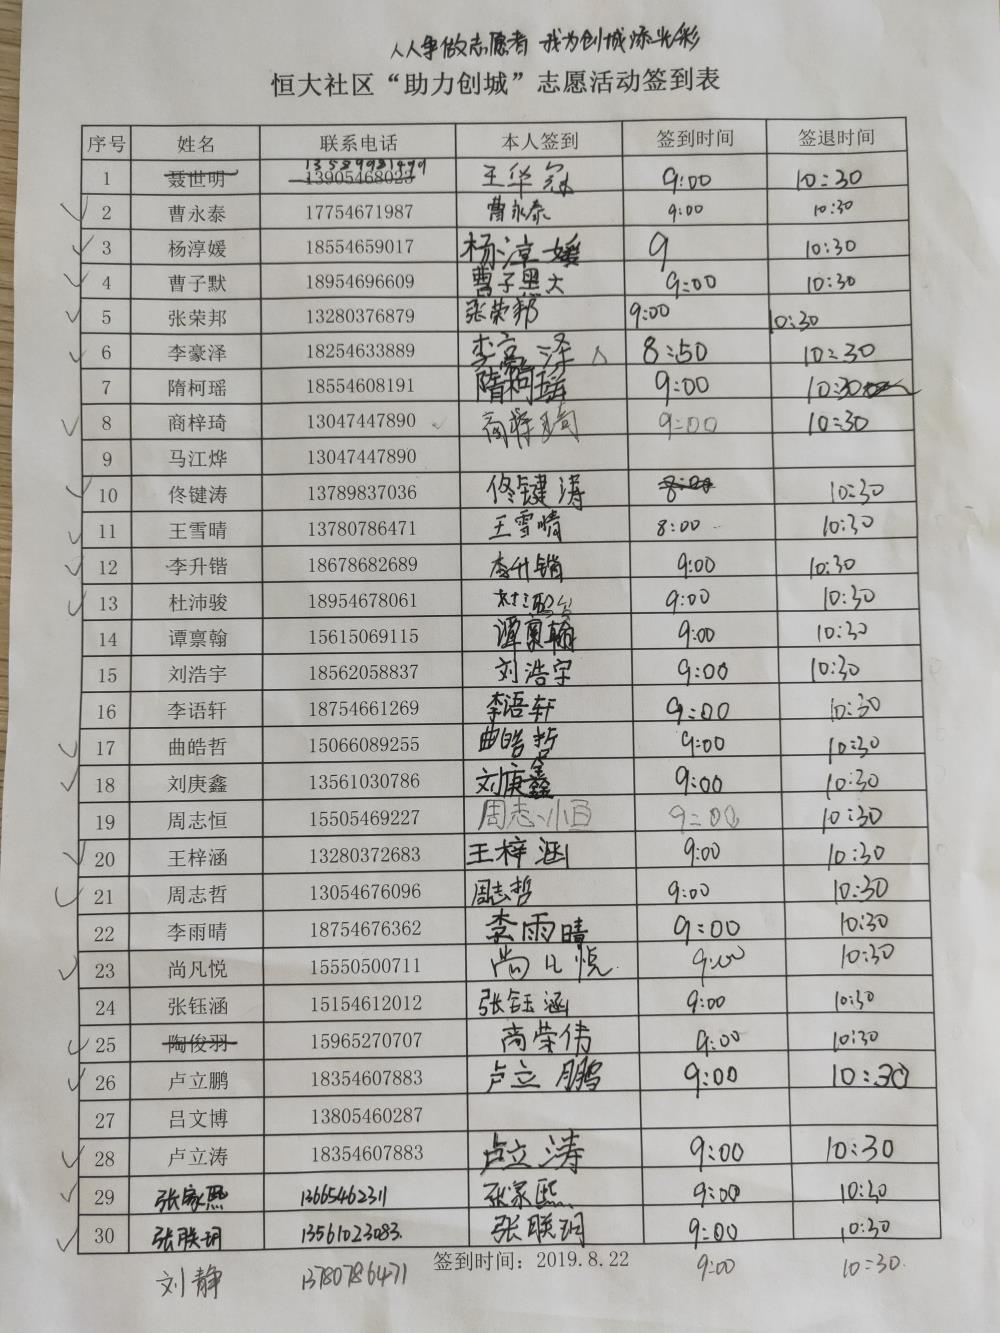 人人争做志愿者 我为创城添光彩
恒大社区“助力创城”志愿活动签到表
序号 姓名 联系电话 本人签到 签到时间 签退时间
1 聂世明 13905468023 王华 9:00 10:30
2 曹永泰 17754671987 曹永泰 9:00 10:30
3 杨淳媛 18554659017 杨淳媛 9 10:30
4 曹子默 18954696609 曹子默 9:00 10:30
5 张荣邦 13280376879 张荣邦 9:00 10:30
6 李豪泽 18254633889 李豪泽 8:50 10:30
7 隋柯瑶 18554608191 隋柯瑶 9:00 10:30
8 商梓琦 13047447890 商梓琦 9:00 10:30
9 马江烨 13047447890
10 佟键涛 13789837036 佟键涛 8:00 10:30
11 王雪晴 13780786471 王雪晴 8:00 10:30
12 李升锴 18678682689 李升锴 9:00 10:30
13 杜沛骏 18954678061 9:00 10:30
14 谭禀翰 15615069115 谭禀翰 9:00 10:30
15 刘浩宇 18562058837 刘浩宇 9:00 10:30
16 李语轩 18754661269 李语轩 9:00 10:30
17 曲皓哲 15066089255 曲皓哲 9:00 10:30
18 刘庚鑫 13561030786 刘庚鑫 9:00 10:30
19 周志恒 15505469227 周志恒 9:00 10:30
20 王梓涵 13280372683 王梓涵 9:00 10:30
21 周志哲 13054676096 周志哲 9:00 10:30
22 李雨晴 18754676362 李雨晴 9:00 10:30
23 尚凡悦 15550500711 尚凡悦 9:00 10:30
24 张钰涵 15154612012 张钰涵 9:00 10:30
25 陶俊羽 15965270707 商荣伟 9:00 10:30
26 卢立鹏 18354607883 卢立鹏 9:00 10:30
27 吕文博 13805460287
28 卢立涛 18354607883 卢立涛 9:00 10:30
29 张家熙 13665462311 张家熙 9:00 10:30
30 张联玥 13561023083 张联玥 9:00 10:30
签到时间：2019.8.22
刘静 13780786471 9:00 10:30